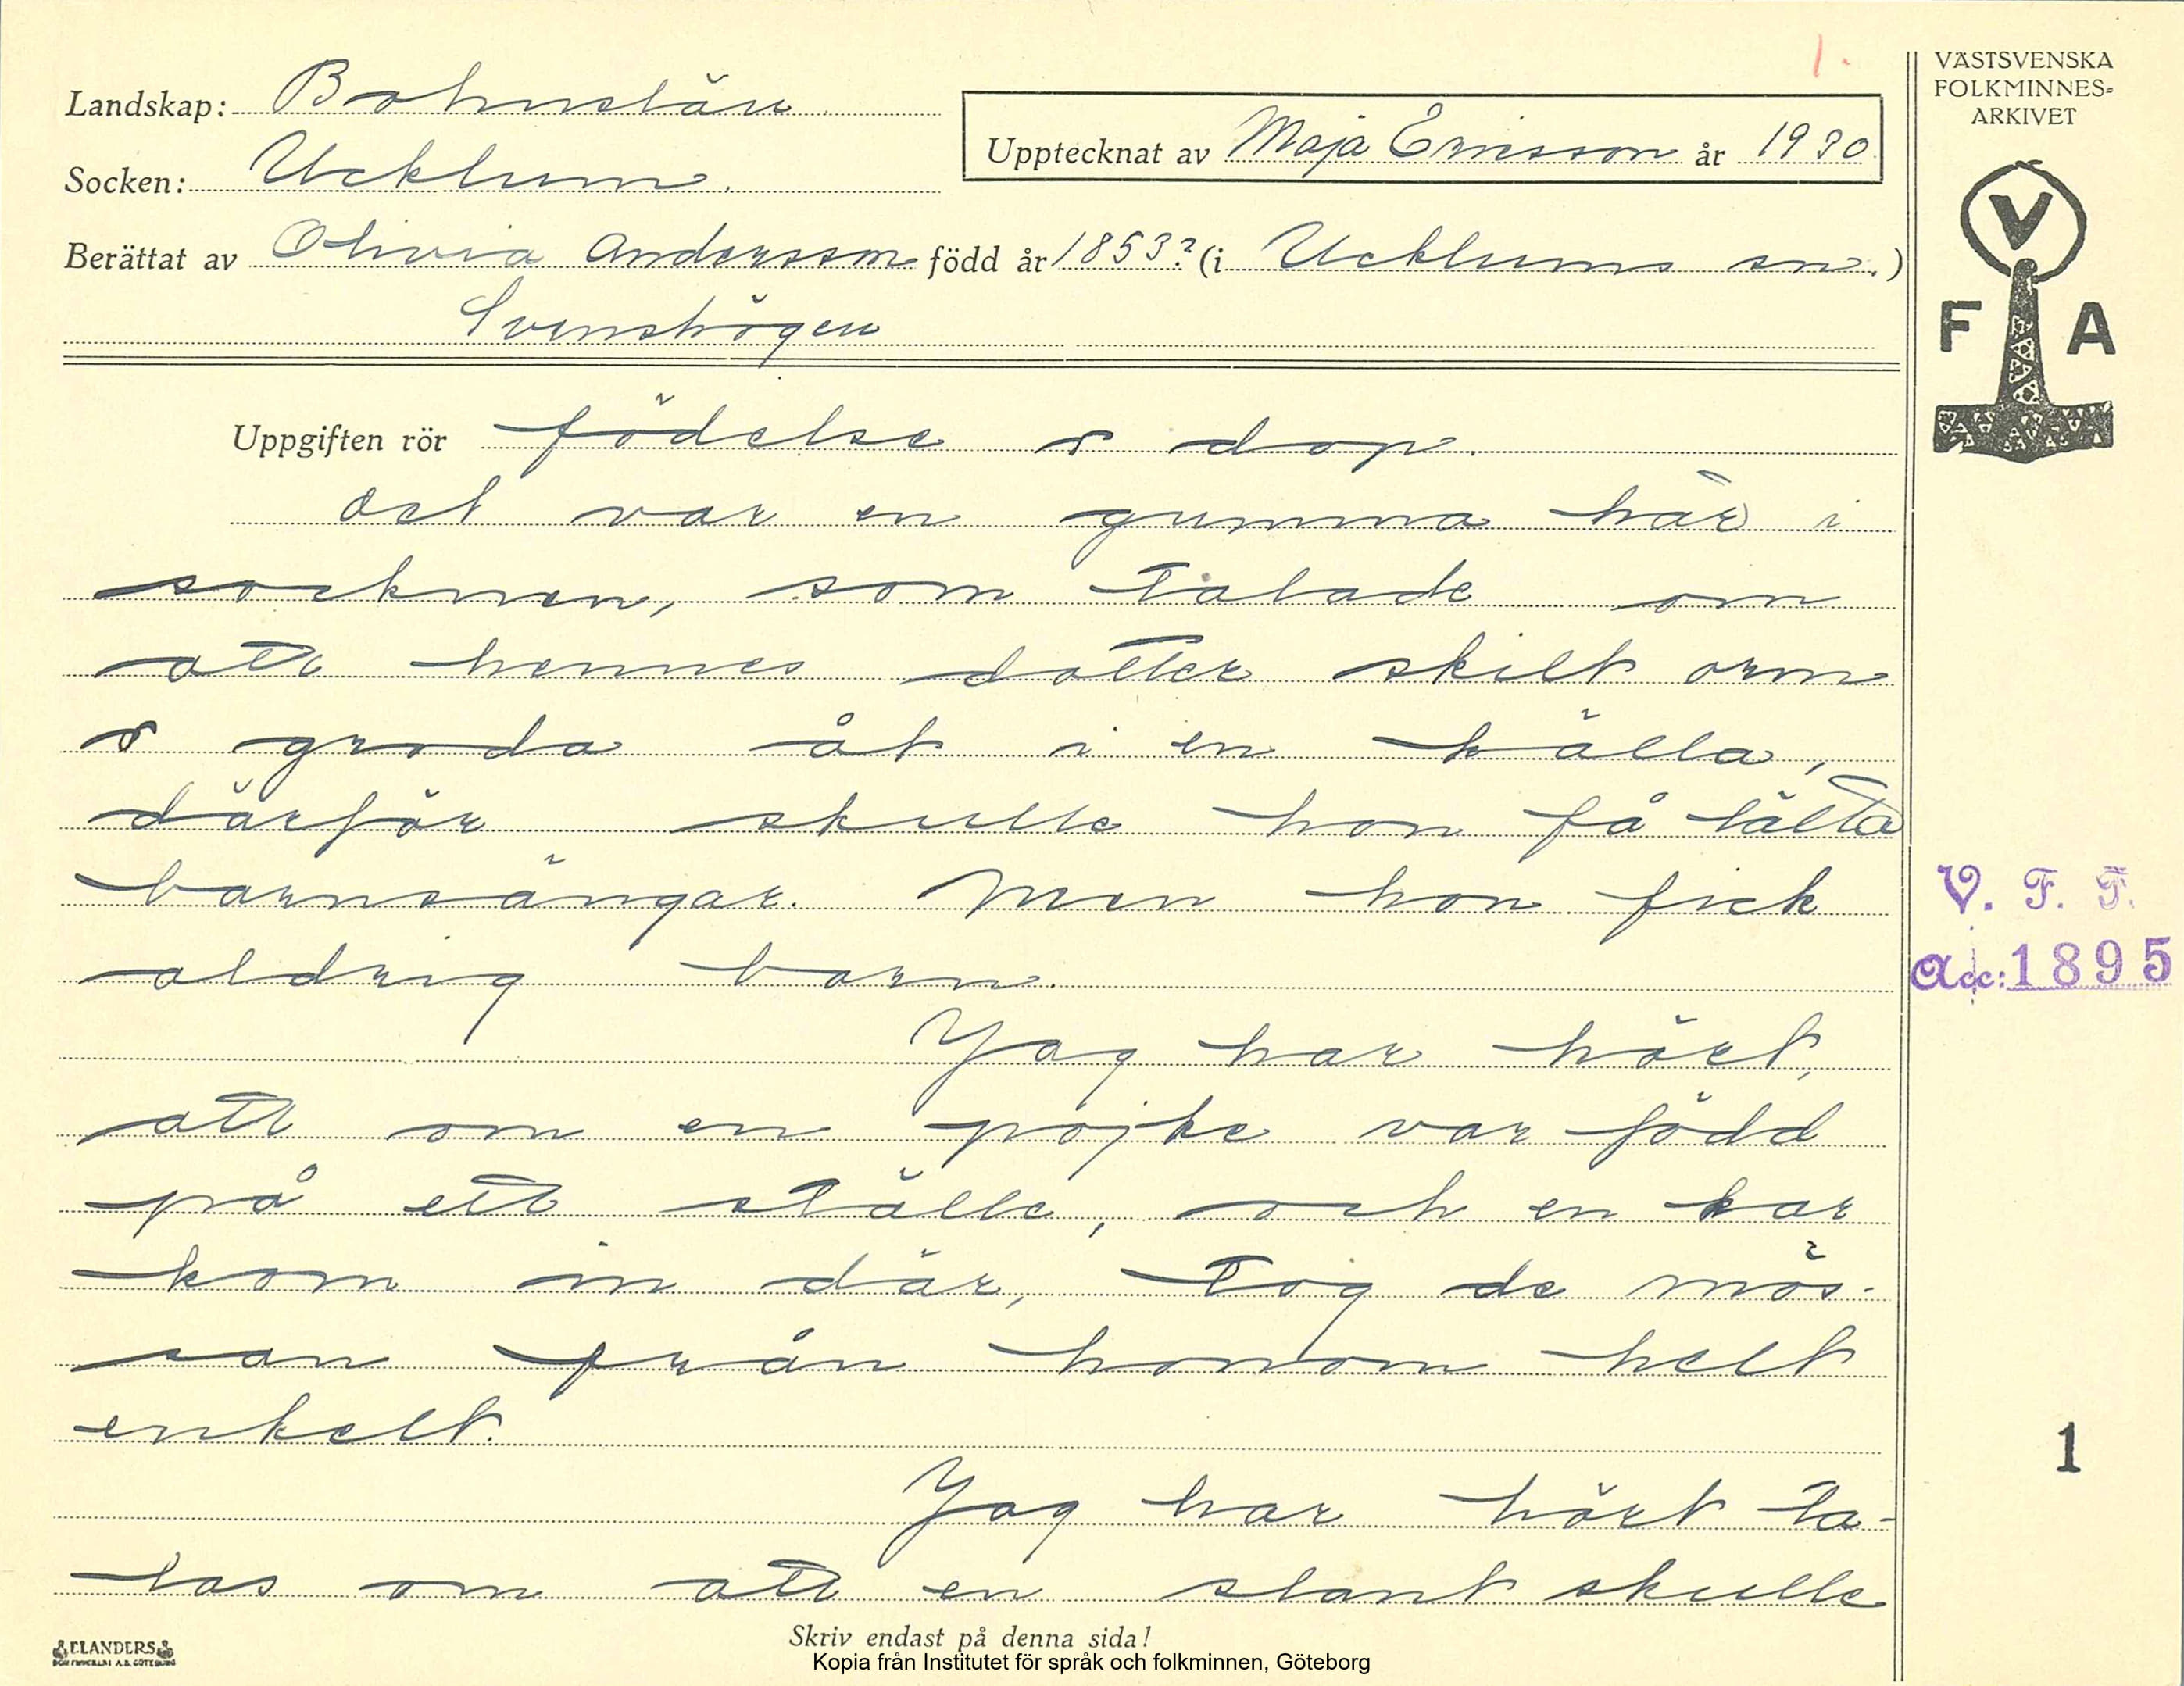 1.
VÄSTSVENSKA
FOLKMINNES=
ARKIVET
Landskap: Bohuslän
Upptecknat av Maja Ericsson år 1930
Socken: Ucklum.
Berättat av Olivia Andersson född år 1853? (i Ucklums sn.)
Svenshögen
V
F A
Uppgiften rör födelse o dop.
Det var en gumma här i
socknen, som talade om
att hennes dotter skilt orm
o groda åt i en källa,
därför skulle hon få lätta
barnsängar. Men hon fick
aldrig barn.
V. F. F.
Acc: 1895
Jag har hört,
att om en pojke var född
på ett ställe, och en kar
kom in där, tog de mös-
san från honom helt
enkelt.
1
Jag har hört ta-
las om att en slant skulle
Skriv endast på denna sida!
ELANDERS
Kopia från Institutet för språk och folkminnen, Göteborg